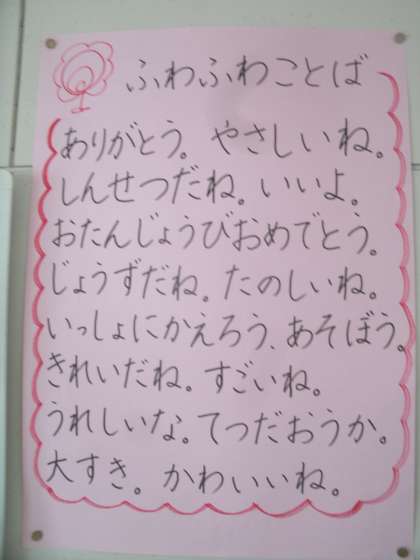 ふわふわことば
ありがとう。やさしいね。
しんせつだね。いいよ。
おたんじょうびおめでとう。
じょうずだね。たのしいね。
いっしょにかえろう、あそぼう。
きれいだね。すごいね。
うれしいな。てつだおうか。
大すき。かわいいね。